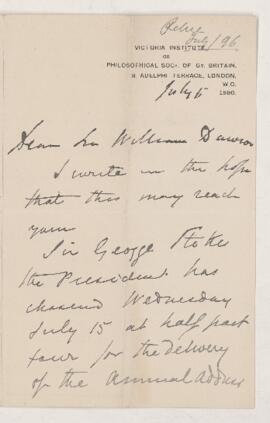 July / 96
VICTORIA INSTITUTE,
OR
PHILOSOPHICAL SOCY. OF GT. BRITAIN,
8 ADELPHI TERRACE, LONDON,
W.C.
July 6 1896.
Dear Sir William Dawson
I write in the hope
that this may reach
you
Sir George Stokes
the President has
Wednesday
July 15 at half past
four for the delivery
of the Annual Address